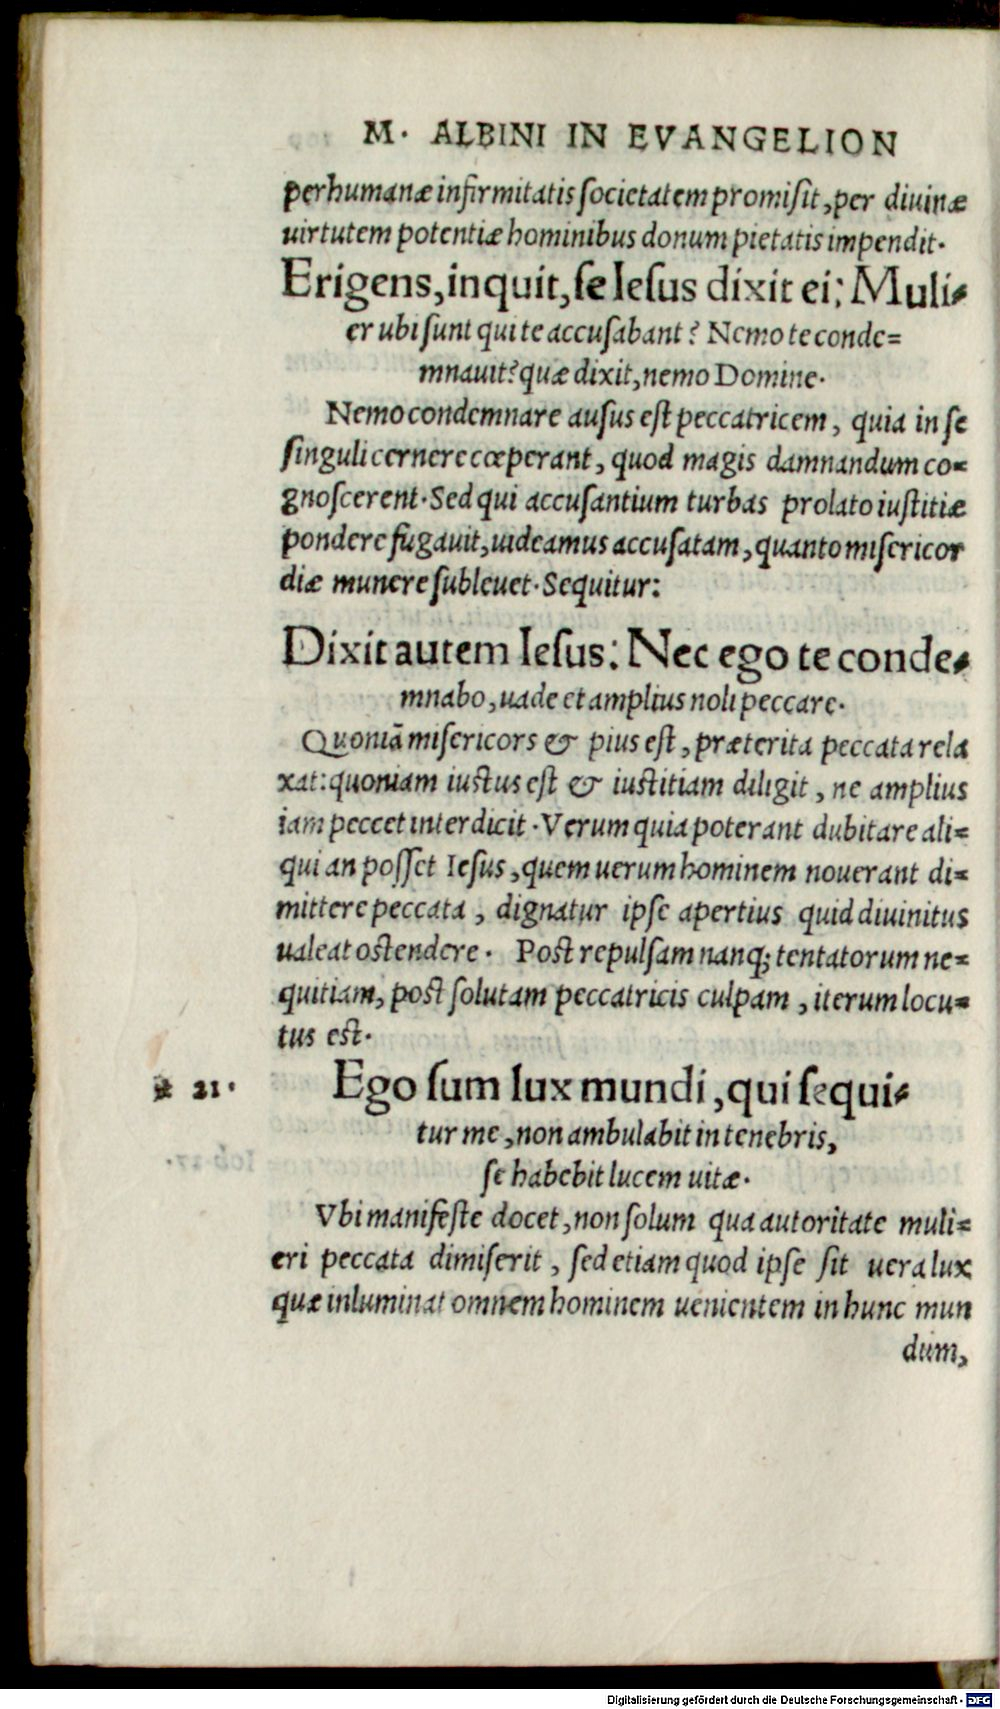 M. ALBINI IN EVANGELION
per humanæ infirmitatis ſocietatem promiſit, per diuinæ
uirtutem potentiæ hominibus donum pietatis impendit.
Erigens, inquit, ſe Ieſus dixit ei: Muli-
er ubi ſunt qui te accuſabant? Nemo te conde=
mnauit? quæ dixit, nemo Domine.
Nemo condemnare auſus eſt peccatricem, quia in ſe
ſinguli cernere cœperant, quod magis damnandum co=
gnoſcerent. Sed qui accuſantium turbas prolato iuſtitiæ
pondere fugauit, uideamus accuſatam, quanto miſericor
diæ munere ſubleuet. Sequitur:
Dixit autem Ieſus: Nec ego te conde-
mnabo, uade et amplius noli peccare.
Quoniā miſericors & pius eſt, præterita peccata rela
xat: quoniam iuſtus eſt & iuſtitiam diligit, ne amplius
iam peccet interdicit. Verum quia poterant dubitare ali=
qui an poſſet Ieſus, quem uerum hominem nouerant di=
mittere peccata, dignatur ipſe apertius quid diuinitus
ualeat oſtendere. Poſt repulſam nanq; tentatorum ne=
quitiam, poſt ſolutam peccatricis culpam, iterum locu=
tus eſt.
* 21.
Ego ſum lux mundi, qui ſequi-
tur me, non ambulabit in tenebris,
ſe habebit lucem uitæ.
Vbi manifeſte docet, non ſolum qua autoritate muli=
eri peccata dimiſerit, ſed etiam quod ipſe ſit uera lux
quæ inluminat omnem hominem uenientem in hunc mun
dum,
Digitalisierung gefördert durch die Deutsche Forschungsgemeinschaft - DFG